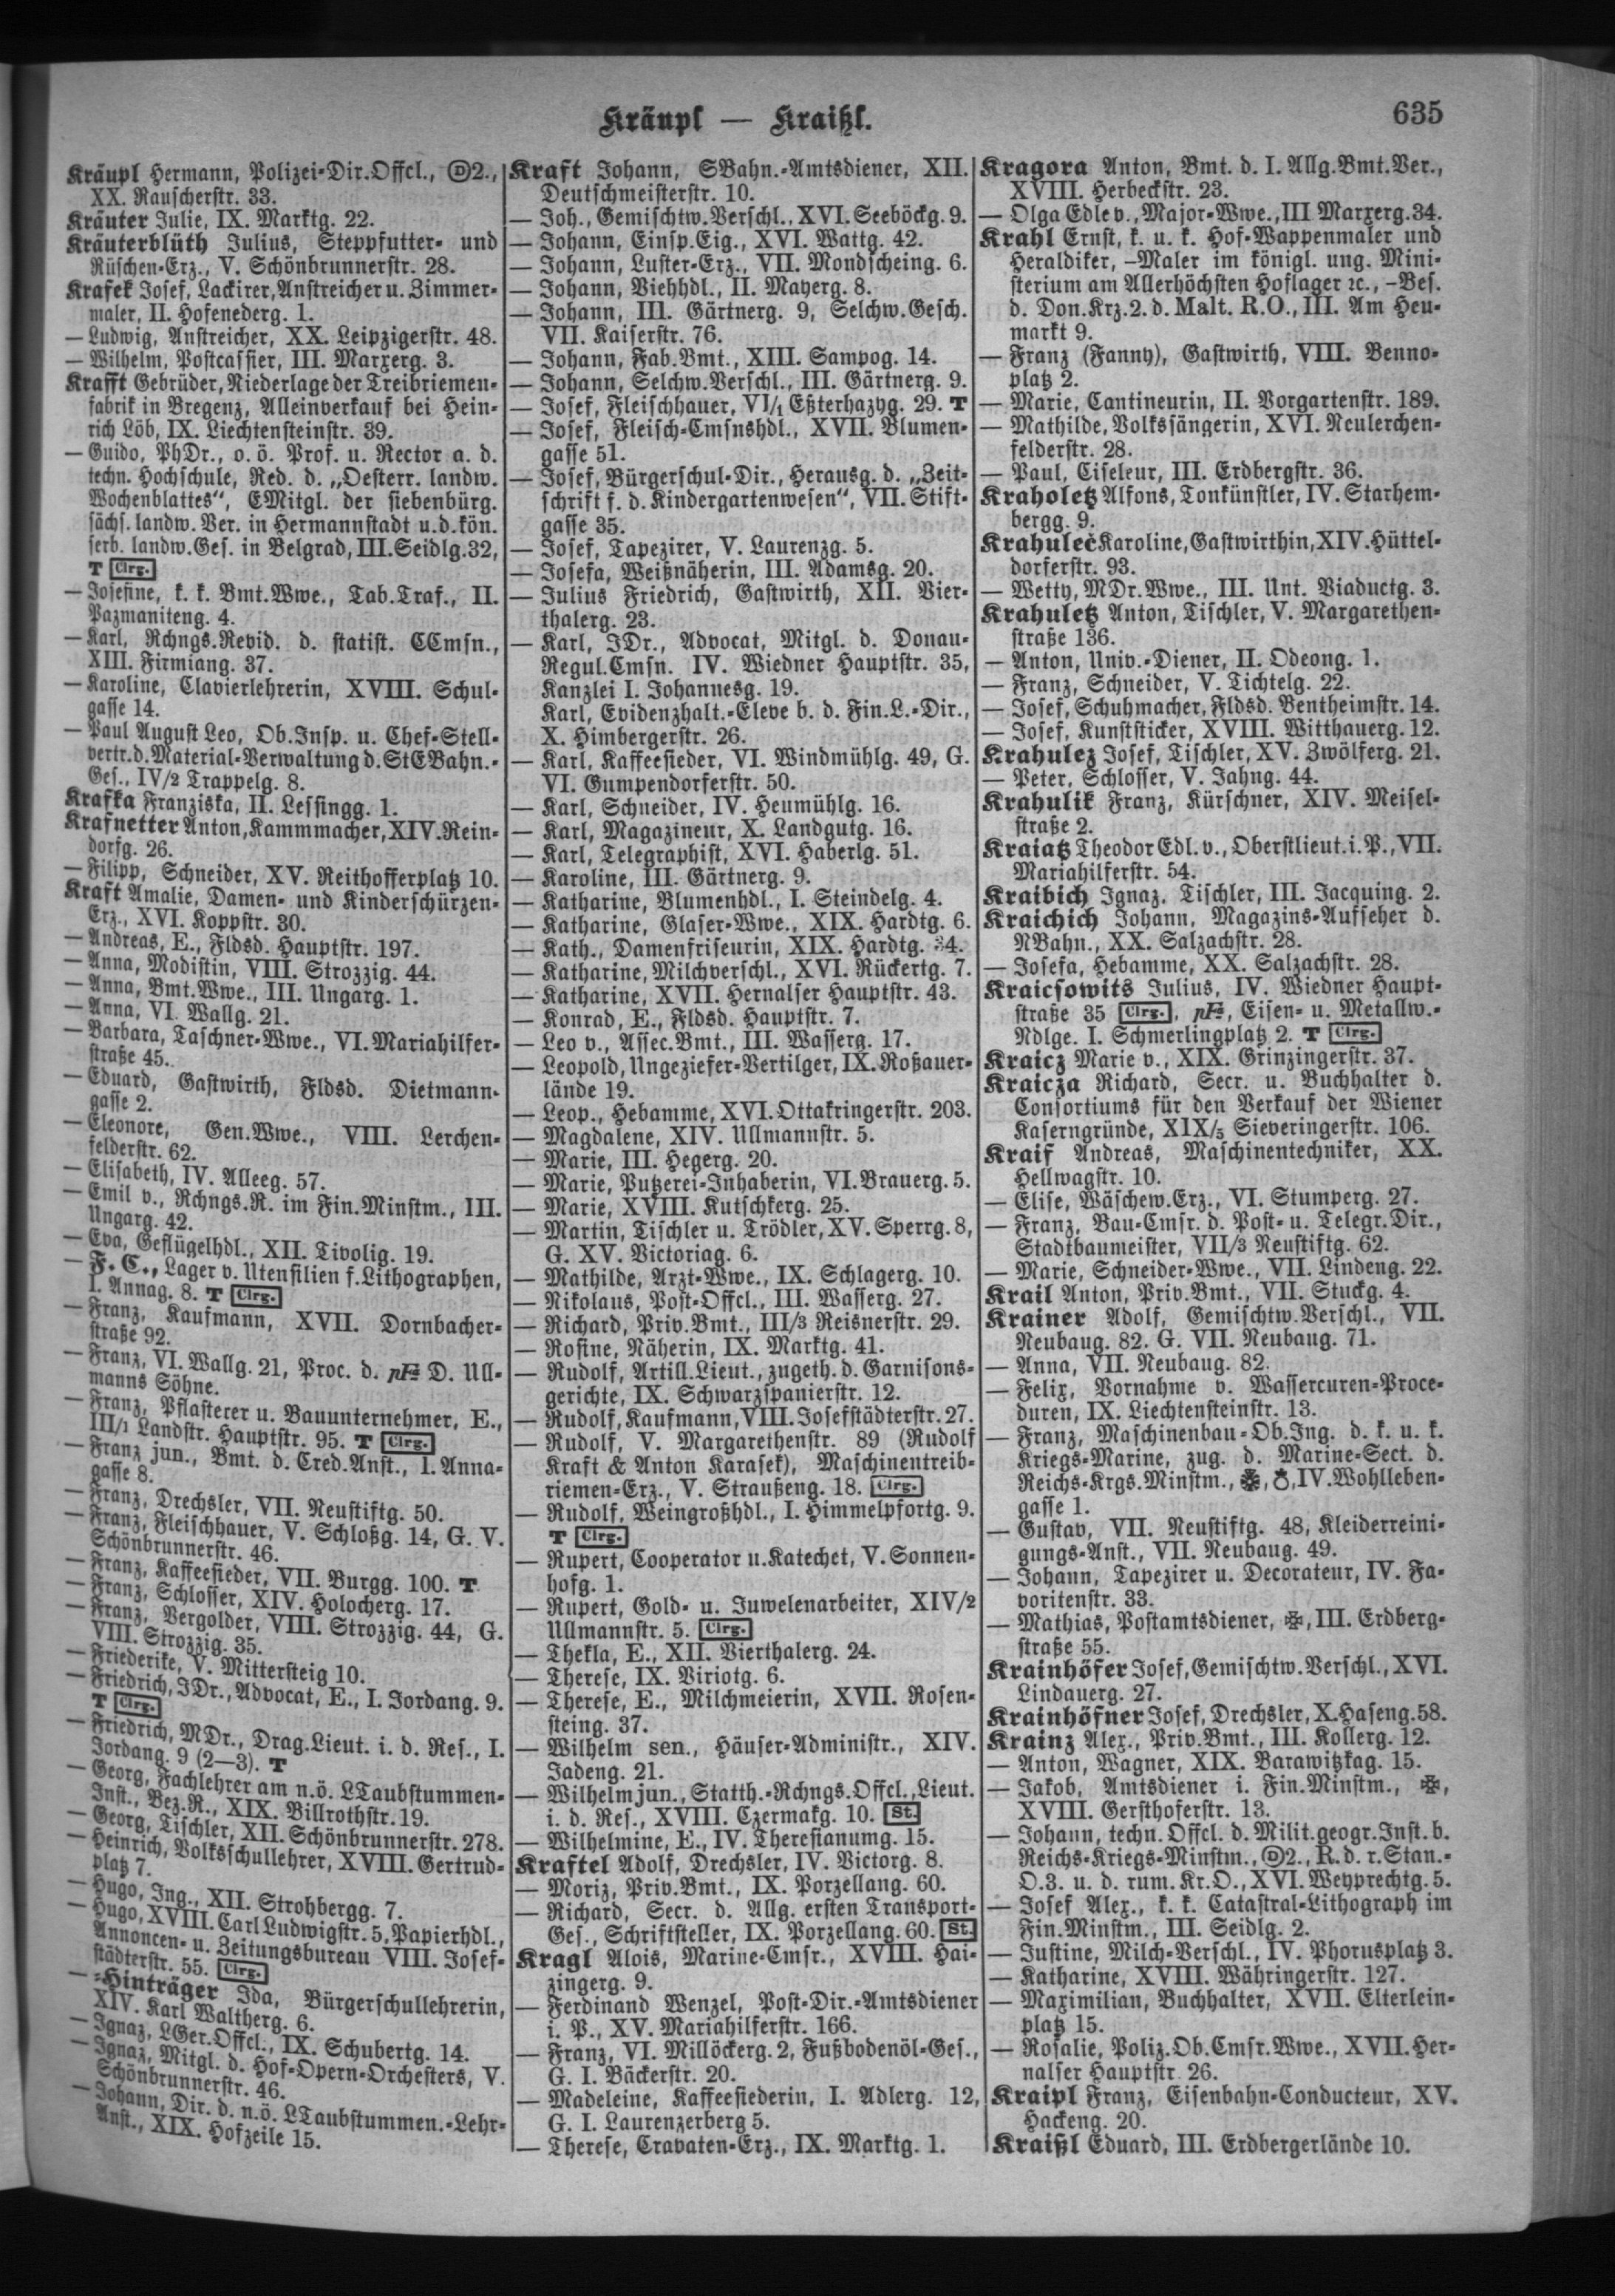 Kräupl — Kraißl.
635
Kräupl Hermann, Polizei-Dir.Offcl., Ⓓ2.,
XX. Rauscherstr. 33.
Kräuter Julie, IX. Marktg. 22.
Kräuterblüth Julius, Steppfutter- und
Rüschen-Erz., V. Schönbrunnerstr. 28.
Krafek Josef, Lackirer, Anstreicher u. Zimmer-
maler, II. Hofenederg. 1.
— Ludwig, Anstreicher, XX. Leipzigerstr. 48.
— Wilhelm, Postcassier, III. Marxerg. 3.
Krafft Gebrüder, Niederlage der Treibriemen-
fabrik in Bregenz, Alleinverkauf bei Hein-
rich Löb, IX. Liechtensteinstr. 39.
— Guido, PhDr., o. ö. Prof. u. Rector a. d.
techn. Hochschule, Red. d. „Oesterr. landw.
Wochenblattes“, EMitgl. der siebenbürg.
sächs. landw. Ver. in Hermannstadt u. d. kön.
serb. landw. Ges. in Belgrad, III. Seidlg. 32,
T Clrg.
— Josefine, k. k. Bmt.Wwe., Tab.Traf., II.
Pazmaniteng. 4.
— Karl, Rchngs.Revid. d. statist. CCmsn.,
XIII. Firmiang. 37.
— Karoline, Clavierlehrerin, XVIII. Schul-
gasse 14.
— Paul August Leo, Ob.Insp. u. Chef-Stell-
vertr. d. Material-Verwaltung d. StEBahn.-
Ges., IV/2 Trappelg. 8.
Krafka Franziska, II. Lessingg. 1.
Krafnetter Anton, Kammmacher, XIV. Rein-
dorfg. 26.
— Filipp, Schneider, XV. Reithofferplatz 10.
Kraft Amalie, Damen- und Kinderschürzen-
Erz., XVI. Koppstr. 30.
— Andreas, E., Fldsd. Hauptstr. 197.
— Anna, Modistin, VIII. Strozzig. 44.
— Anna, Bmt.Wwe., III. Ungarg. 1.
— Anna, VI. Wallg. 21.
— Barbara, Taschner-Wwe., VI. Mariahilfer-
straße 45.
— Eduard, Gastwirth, Fldsd. Dietmann-
gasse 2.
— Eleonore, Gen.Wwe., VIII. Lerchen-
felderstr. 62.
— Elisabeth, IV. Alleeg. 57.
— Emil v., Rchngs.R. im Fin.Minstm., III.
Ungarg. 42.
— Eva, Geflügelhdl., XII. Tivolig. 19.
— F. C., Lager v. Utensilien f. Lithographen,
I. Annag. 8. T Clrg.
— Franz, Kaufmann, XVII. Dornbacher-
straße 92.
— Franz, VI. Wallg. 21, Proc. d. D. Ull-
manns Söhne.
— Franz, Pflasterer u. Bauunternehmer, E.,
III/1 Landstr. Hauptstr. 95. T Clrg.
— Franz jun., Bmt. d. Cred.Anst., I. Anna-
gasse 8.
— Franz, Drechsler, VII. Neustiftg. 50.
— Franz, Fleischhauer, V. Schloßg. 14, G. V.
Schönbrunnerstr. 46.
— Franz, Kaffeesieder, VII. Burgg. 100. T
— Franz, Schlosser, XIV. Holocherg. 17.
— Franz, Vergolder, VIII. Strozzig. 44, G.
VIII. Strozzig. 35.
— Friederike, V. Mittersteig 10.
— Friedrich, JDr., Advocat, E., I. Jordang. 9.
T Clrg.
— Friedrich, MDr., Drag.Lieut. i. d. Res., I.
Jordang. 9 (2—3). T
— Georg, Fachlehrer am n.ö. LTaubstummen-
Inst., Bez.R., XIX. Billrothstr. 19.
— Georg, Tischler, XII. Schönbrunnerstr. 278.
— Heinrich, Volksschullehrer, XVIII. Gertrud-
platz 7.
— Hugo, Ing., XII. Strohbergg. 7.
— Hugo, XVIII. Carl Ludwigstr. 5, Papierhdl.,
Annoncen- u. Zeitungsbureau VIII. Josef-
städterstr. 55. Clrg.
— -Hinträger Ida, Bürgerschullehrerin,
XIV. Karl Waltherg. 6.
— Ignaz, LGer.Offcl., IX. Schubertg. 14.
— Ignaz, Mitgl. d. Hof-Opern-Orchesters, V.
Schönbrunnerstr. 46.
— Johann, Dir. d. n.ö. LTaubstummen.-Lehr-
Anst., XIX. Hofzeile 15.
Kraft Johann, SBahn.-Amtsdiener, XII.
Deutschmeisterstr. 10.
— Joh., Gemischtw.Verschl., XVI. Seeböckg. 9.
— Johann, Einsp.Eig., XVI. Wattg. 42.
— Johann, Luster-Erz., VII. Mondscheing. 6.
— Johann, Viehhdl., II. Mayerg. 8.
— Johann, III. Gärtnerg. 9, Selchw.Gesch.
VII. Kaiserstr. 76.
— Johann, Fab.Bmt., XIII. Sampog. 14.
— Johann, Selchw.Verschl., III. Gärtnerg. 9.
— Josef, Fleischhauer, VI/1 Eßterhazyg. 29. T
— Josef, Fleisch-Cmsnshdl., XVII. Blumen-
gasse 51.
— Josef, Bürgerschul-Dir., Herausg. d. „Zeit-
schrift f. d. Kindergartenwesen“, VII. Stift-
gasse 35.
— Josef, Tapezirer, V. Laurenzg. 5.
— Josefa, Weißnäherin, III. Adamsg. 20.
— Julius Friedrich, Gastwirth, XII. Vier-
thalerg. 23.
— Karl, JDr., Advocat, Mitgl. d. Donau-
Regul.Cmsn. IV. Wiedner Hauptstr. 35,
Kanzlei I. Johannesg. 19.
Karl, Evidenzhalt.-Eleve b. d. Fin.L.-Dir.,
X. Himbergerstr. 26.
— Karl, Kaffeesieder, VI. Windmühlg. 49, G.
VI. Gumpendorferstr. 50.
— Karl, Schneider, IV. Heumühlg. 16.
— Karl, Magazineur, X. Landgutg. 16.
— Karl, Telegraphist, XVI. Haberlg. 51.
— Karoline, III. Gärtnerg. 9.
— Katharine, Blumenhdl., I. Steindelg. 4.
— Katharine, Glaser-Wwe., XIX. Hardtg. 6.
— Kath., Damenfriseurin, XIX. Hardtg. 34.
— Katharine, Milchverschl., XVI. Rückertg. 7.
— Katharine, XVII. Hernalser Hauptstr. 43.
— Konrad, E., Fldsd. Hauptstr. 7.
— Leo v., Assec.Bmt., III. Wasserg. 17.
— Leopold, Ungeziefer-Vertilger, IX. Roßauer-
lände 19.
— Leop., Hebamme, XVI. Ottakringerstr. 203.
— Magdalene, XIV. Ullmannstr. 5.
— Marie, III. Hegerg. 20.
— Marie, Putzerei-Inhaberin, VI. Brauerg. 5.
— Marie, XVIII. Kutschkerg. 25.
— Martin, Tischler u. Trödler, XV. Sperrg. 8,
G. XV. Victoriag. 6.
— Mathilde, Arzt-Wwe., IX. Schlagerg. 10.
— Nikolaus, Post-Offcl., III. Wasserg. 27.
— Richard, Priv.Bmt., III/3 Reisnerstr. 29.
— Rosine, Näherin, IX. Marktg. 41.
— Rudolf, Artill.Lieut., zugeth. d. Garnisons-
gerichte, IX. Schwarzspanierstr. 12.
— Rudolf, Kaufmann, VIII. Josefstädterstr. 27.
— Rudolf, V. Margarethenstr. 89 (Rudolf
Kraft & Anton Karasek), Maschinentreib-
riemen-Erz., V. Straußeng. 18. Clrg.
— Rudolf, Weingroßhdl., I. Himmelpfortg. 9.
T Clrg.
— Rupert, Cooperator u. Katechet, V. Sonnen-
hofg. 1.
— Rupert, Gold- u. Juwelenarbeiter, XIV/2
Ullmannstr. 5. Clrg.
— Thekla, E., XII. Vierthalerg. 24.
— Therese, IX. Viriotg. 6.
— Therese, E., Milchmeierin, XVII. Rosen-
steing. 37.
— Wilhelm sen., Häuser-Administr., XIV.
Jadeng. 21.
— Wilhelm jun., Statth.-Rchngs.Offcl., Lieut.
i. d. Res., XVIII. Czermakg. 10. St.
— Wilhelmine, E., IV. Theresianumg. 15.
Kraftel Adolf, Drechsler, IV. Victorg. 8.
— Moriz, Priv.Bmt., IX. Porzellang. 60.
— Richard, Secr. d. Allg. ersten Transport-
Ges., Schriftsteller, IX. Porzellang. 60. St.
Kragl Alois, Marine-Cmsr., XVIII. Hai-
zingerg. 9.
— Ferdinand Wenzel, Post-Dir.-Amtsdiener
i. P., XV. Mariahilferstr. 166.
— Franz, VI. Millöckerg. 2, Fußbodenöl-Ges.,
G. I. Bäckerstr. 20.
— Madeleine, Kaffeesiederin, I. Adlerg. 12,
G. I. Laurenzerberg 5.
— Therese, Cravaten-Erz., IX. Marktg. 1.
Kragora Anton, Bmt. d. I. Allg.Bmt.Ver.,
XVIII. Herbeckstr. 23.
— Olga Edle v., Major-Wwe., III Marxerg. 34.
Krahl Ernst, k. u. k. Hof-Wappenmaler und
Heraldiker, –Maler im königl. ung. Mini-
sterium am Allerhöchsten Hoflager ꝛc., –Bes.
d. Don.Krz. 2. d. Malt. R.O., III. Am Heu-
markt 9.
— Franz (Fanny), Gastwirth, VIII. Benno-
platz 2.
— Marie, Cantineurin, II. Vorgartenstr. 189.
— Mathilde, Volkssängerin, XVI. Neulerchen-
felderstr. 28.
— Paul, Ciseleur, III. Erdbergstr. 36.
Kraholetz Alfons, Tonkünstler, IV. Starhem-
bergg. 9.
Krahuleč Karoline, Gastwirthin, XIV. Hüttel-
dorferstr. 93.
— Wetty, MDr.Wwe., III. Unt. Viaductg. 3.
Krahuletz Anton, Tischler, V. Margarethen-
straße 136.
— Anton, Univ.-Diener, II. Odeong. 1.
— Franz, Schneider, V. Tichtelg. 22.
— Josef, Schuhmacher, Fldsd. Bentheimstr. 14.
— Josef, Kunststicker, XVIII. Witthauerg. 12.
Krahulez Josef, Tischler, XV. Zwölferg. 21.
— Peter, Schlosser, V. Jahng. 44.
Krahulik Franz, Kürschner, XIV. Meisel-
straße 2.
Kraiatz Theodor Edl. v., Oberstlieut. i. P., VII.
Mariahilferstr. 54.
Kraibich Ignaz, Tischler, III. Jacquing. 2.
Kraichich Johann, Magazins-Aufseher d.
NBahn., XX. Salzachstr. 28.
— Josefa, Hebamme, XX. Salzachstr. 28.
Kraicsowits Julius, IV. Wiedner Haupt-
straße 35 Clrg., Eisen- u. Metallw.-
Ndlge. I. Schmerlingplatz 2. T Clrg.
Kraicz Marie v., XIX. Grinzingerstr. 37.
Kraicza Richard, Secr. u. Buchhalter d.
Consortiums für den Verkauf der Wiener
Kaserngründe, XIX/5 Sieveringerstr. 106.
Kraif Andreas, Maschinentechniker, XX.
Hellwagstr. 10.
— Elise, Wäschew.Erz., VI. Stumperg. 27.
— Franz, Bau-Cmsr. d. Post- u. Telegr.Dir.,
Stadtbaumeister, VII/3 Neustiftg. 62.
— Marie, Schneider-Wwe., VII. Lindeng. 22.
Krail Anton, Priv.Bmt., VII. Stuckg. 4.
Krainer Adolf, Gemischtw.Verschl., VII.
Neubaug. 82. G. VII. Neubaug. 71.
— Anna, VII. Neubaug. 82.
— Felix, Vornahme v. Wassercuren-Proce-
duren, IX. Liechtensteinstr. 13.
— Franz, Maschinenbau-Ob.Ing. d. k. u. k.
Kriegs-Marine, zug. d. Marine-Sect. d.
Reichs-Krgs.Minstm., IV. Wohlleben-
gasse 1.
— Gustav, VII. Neustiftg. 48, Kleiderreini-
gungs-Anst., VII. Neubaug. 49.
— Johann, Tapezirer u. Decorateur, IV. Fa-
voritenstr. 33.
— Mathias, Postamtsdiener, III. Erdberg-
straße 55.
Krainhöfer Josef, Gemischtw.Verschl., XVI.
Lindauerg. 27.
Krainhöfner Josef, Drechsler, X. Haseng. 58.
Krainz Alex., Priv.Bmt., III. Kollerg. 12.
— Anton, Wagner, XIX. Barawitzkag. 15.
— Jakob, Amtsdiener i. Fin.Minstm.,
XVIII. Gersthoferstr. 13.
— Johann, techn. Offcl. d. Milit.geogr.Inst. b.
Reichs-Kriegs-Minstm., Ⓓ2., R. d. r. Stan.-
O. 3. u. d. rum. Kr.O., XVI. Weyprechtg. 5.
— Josef Alex., k. k. Catastral-Lithograph im
Fin.Minstm., III. Seidlg. 2.
— Justine, Milch-Verschl., IV. Phorusplatz 3.
— Katharine, XVIII. Währingerstr. 127.
— Maximilian, Buchhalter, XVII. Elterlein-
platz 15.
— Rosalie, Poliz.Ob.Cmsr.Wwe., XVII. Her-
nalser Hauptstr. 26.
Kraipl Franz, Eisenbahn-Conducteur, XV.
Hackeng. 20.
Kraißl Eduard, III. Erdbergerlände 10.